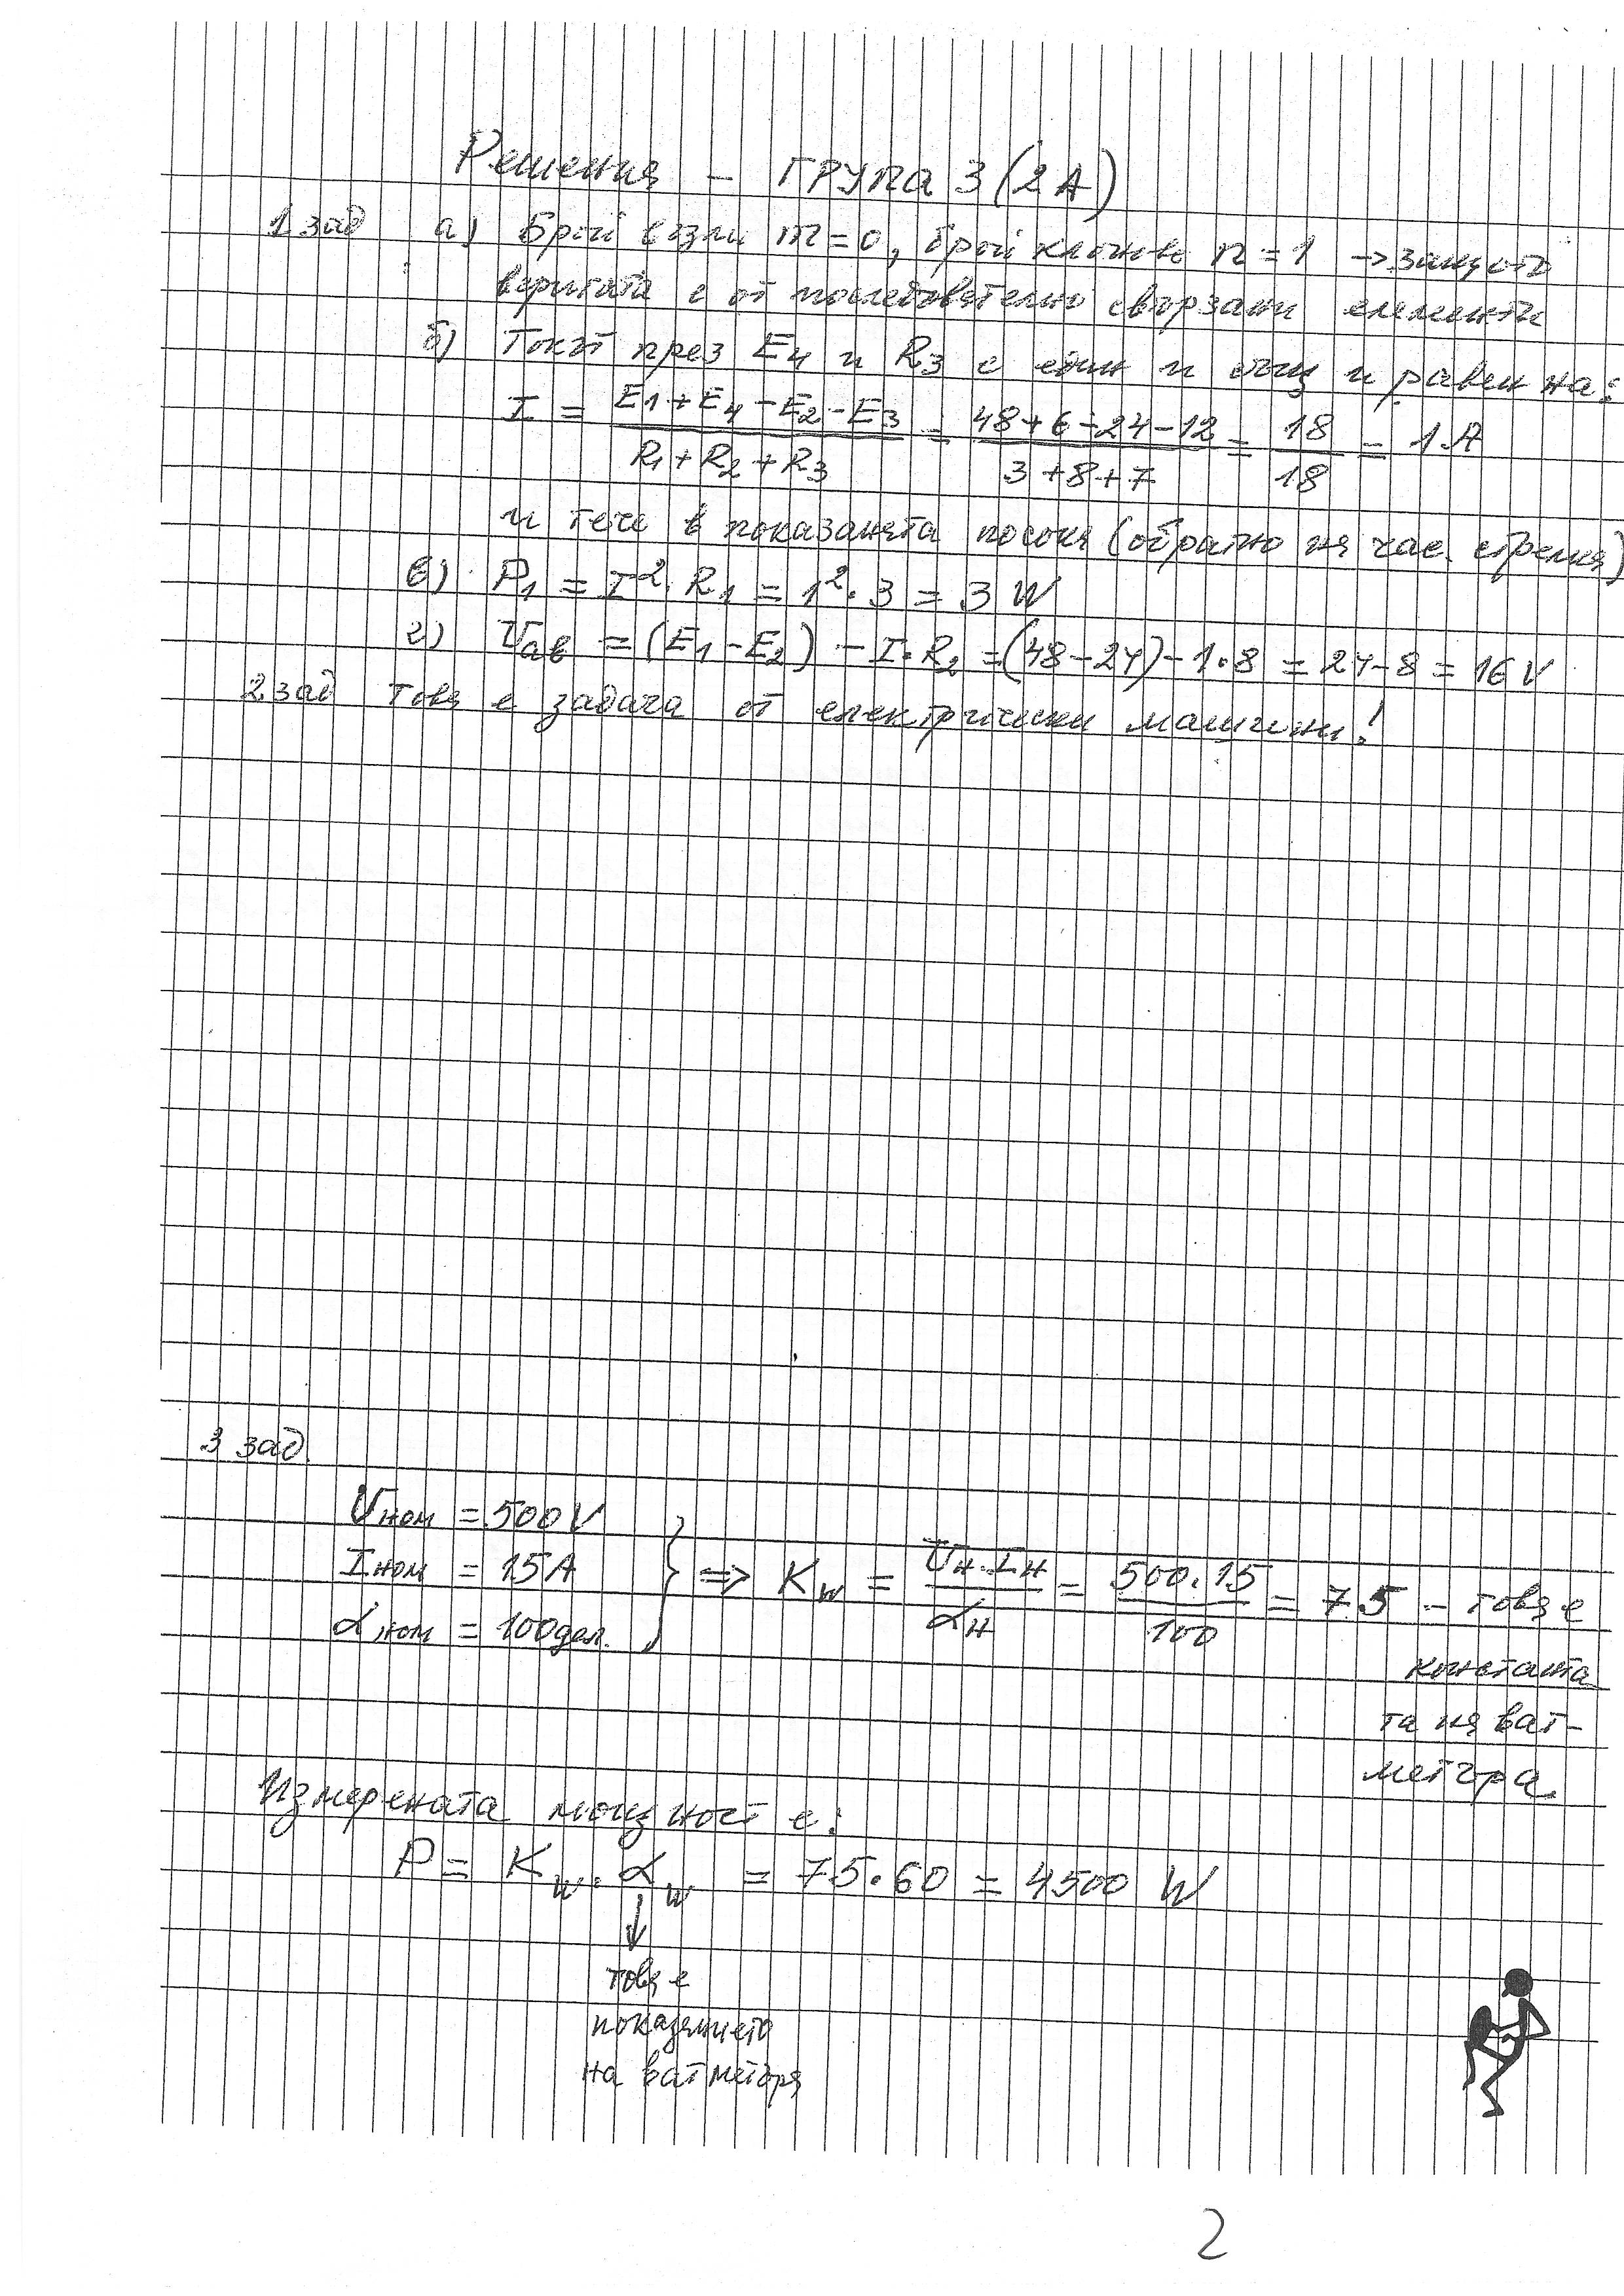 Решения - ГРУПА 3 (2А)
1 зад а) Брой възли m = 0, брой клонове n = 1 → защото
веригата е от последователно свързани елементи
б) Токът през E4 и R3 е един и същ и равен на:
I = (E1 + E4 - E2 - E3) / (R1 + R2 + R3) = (48 + 6 - 24 - 12) / (3 + 8 + 7) = 18 / 18 = 1 A
и тече в показаната посока (обратно на час. стрелка)
в) P1 = I². R1 = 1². 3 = 3 W
г) Uав = (E1 - E2) - I. R2 = (48 - 24) - 1.8 = 24 - 8 = 16 V
2 зад това е задача от електрически машини!
3 зад.
Uном = 500V
Iном = 15A
αном = 100 дел.
} => Kw = Uн. Iн / αн = 500.15 / 100 = 75 - това е
константа
та на ват-
метъра.
Измерената мощност е:
P = Kw. αw = 75.60 = 4500 W
↓
това е
показанието
на ватметъра
2